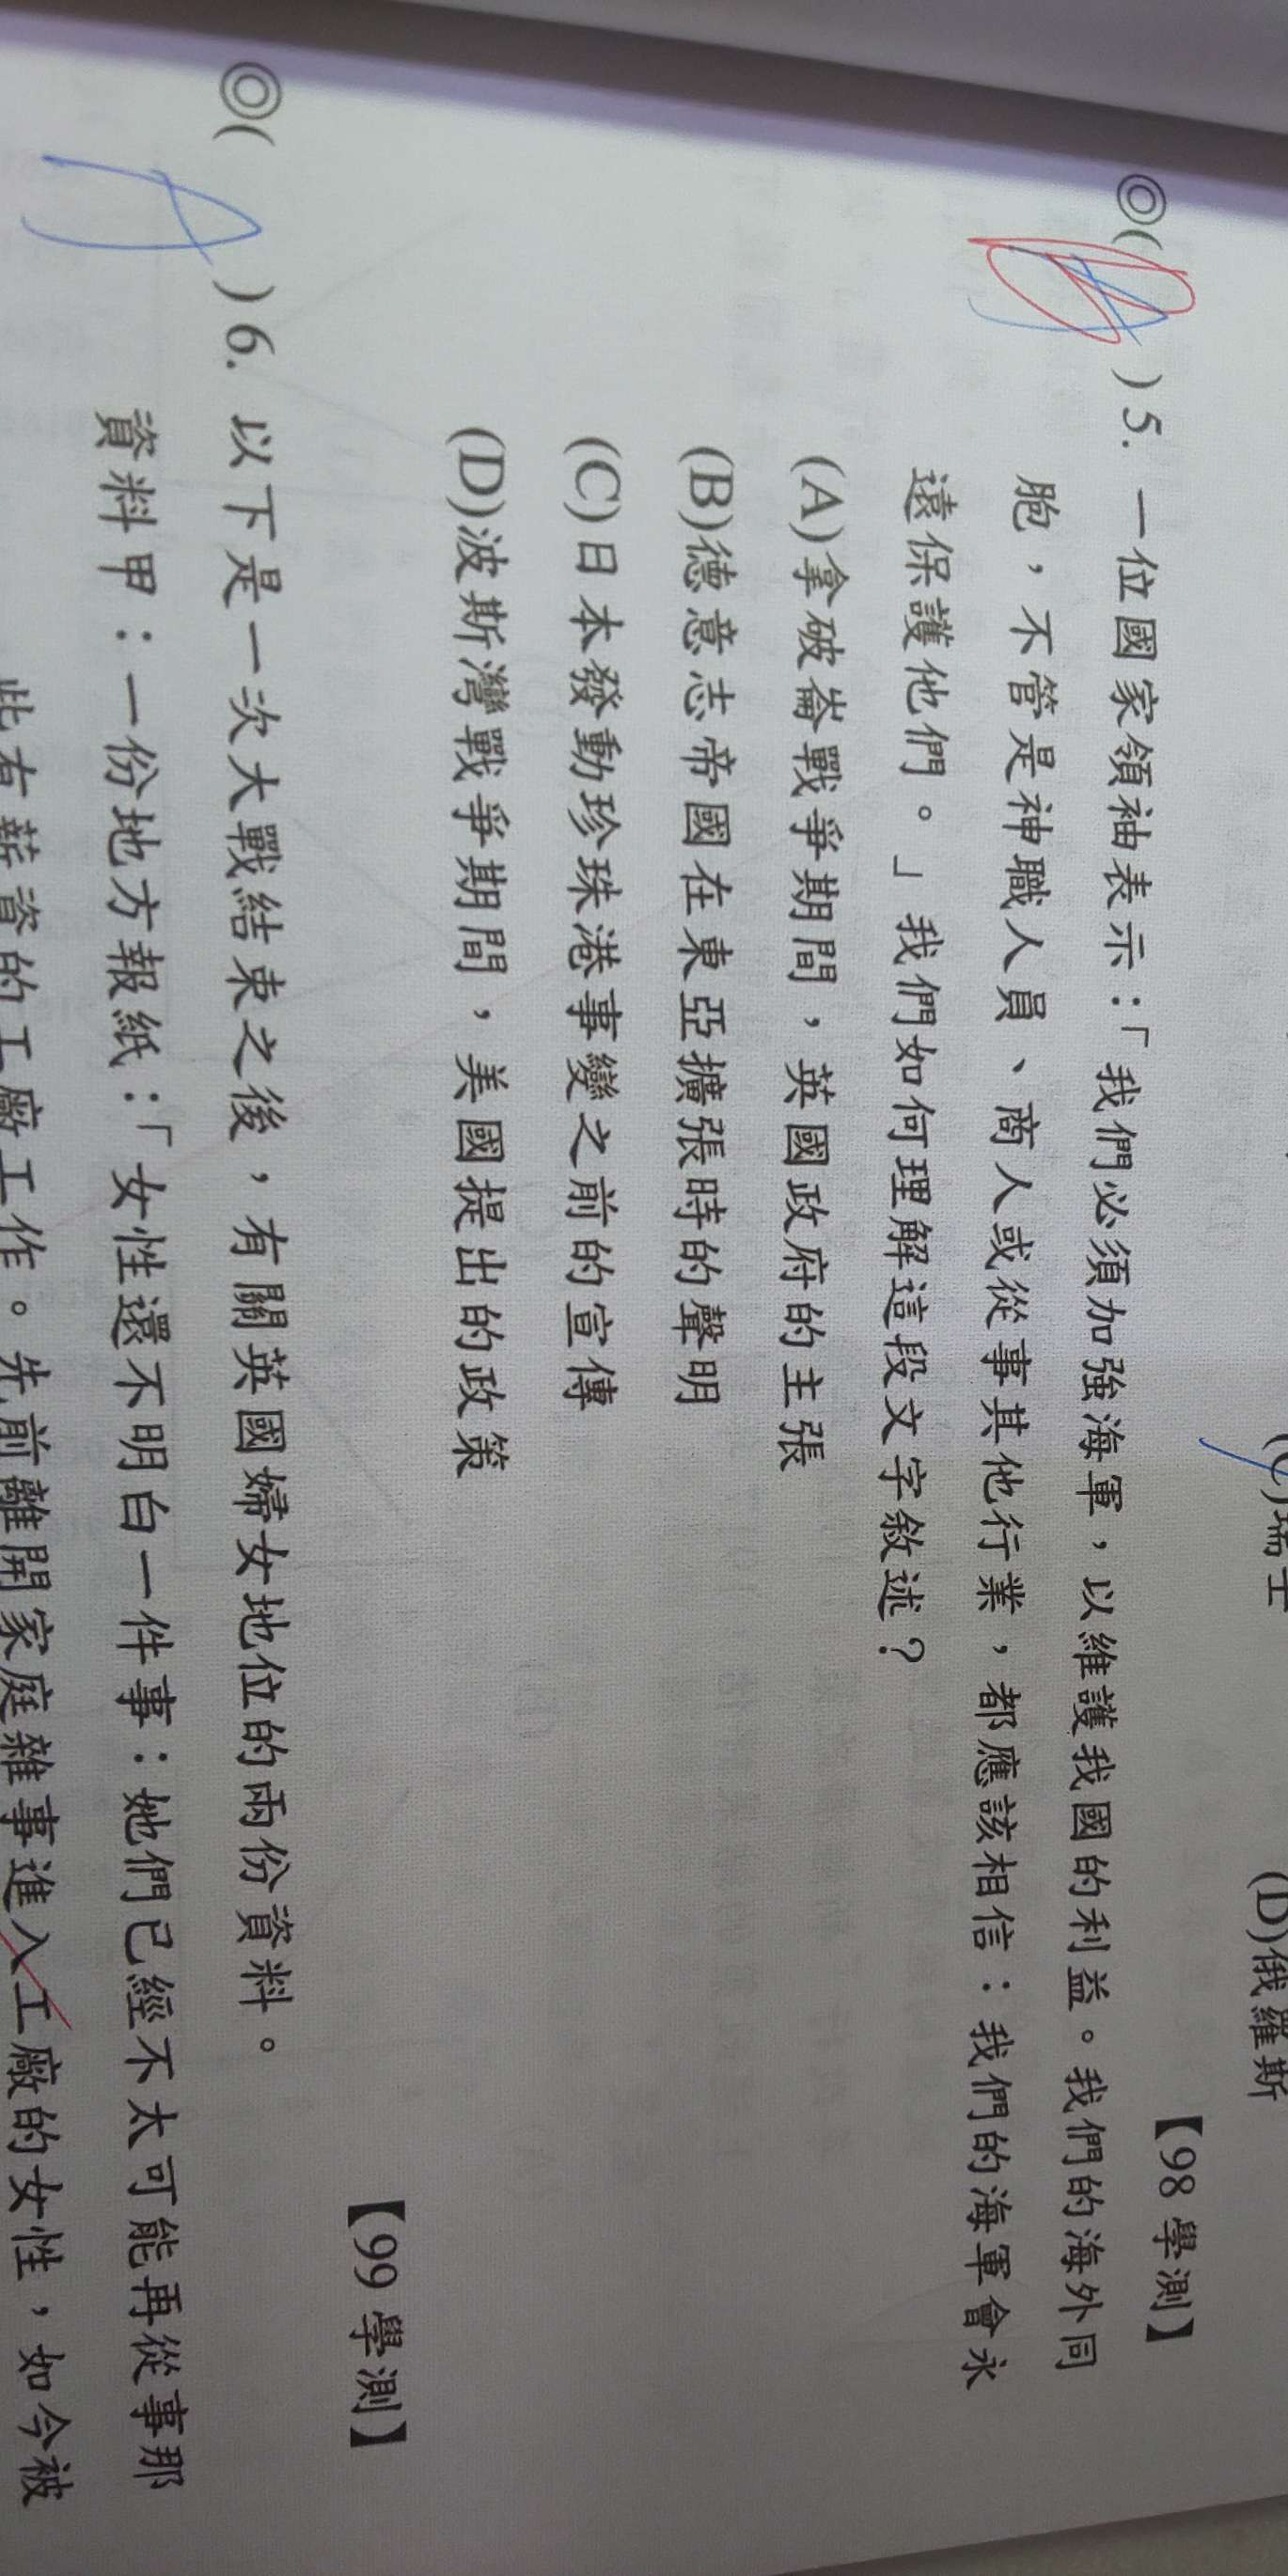 (C)瑞士
(D)俄羅斯
【98 學測】
◎( ) 5. 一位國家領袖表示：「我們必須加強海軍，以維護我國的利益。我們的海外同
胞，不管是神職人員、商人或從事其他行業，都應該相信：我們的海軍會永
遠保護他們。」我們如何理解這段文字敘述？
(A)拿破崙戰爭期間，英國政府的主張
(B)德意志帝國在東亞擴張時的聲明
(C)日本發動珍珠港事變之前的宣傳
(D)波斯灣戰爭期間，美國提出的政策
【99 學測】
◎( A ) 6. 以下是一次大戰結束之後，有關英國婦女地位的兩份資料。
資料甲：一份地方報紙：「女性還不明白一件事：她們已經不太可能再從事那
些有薪資的工廠工作。先前離開家庭雜事進入工廠的女性，如今被